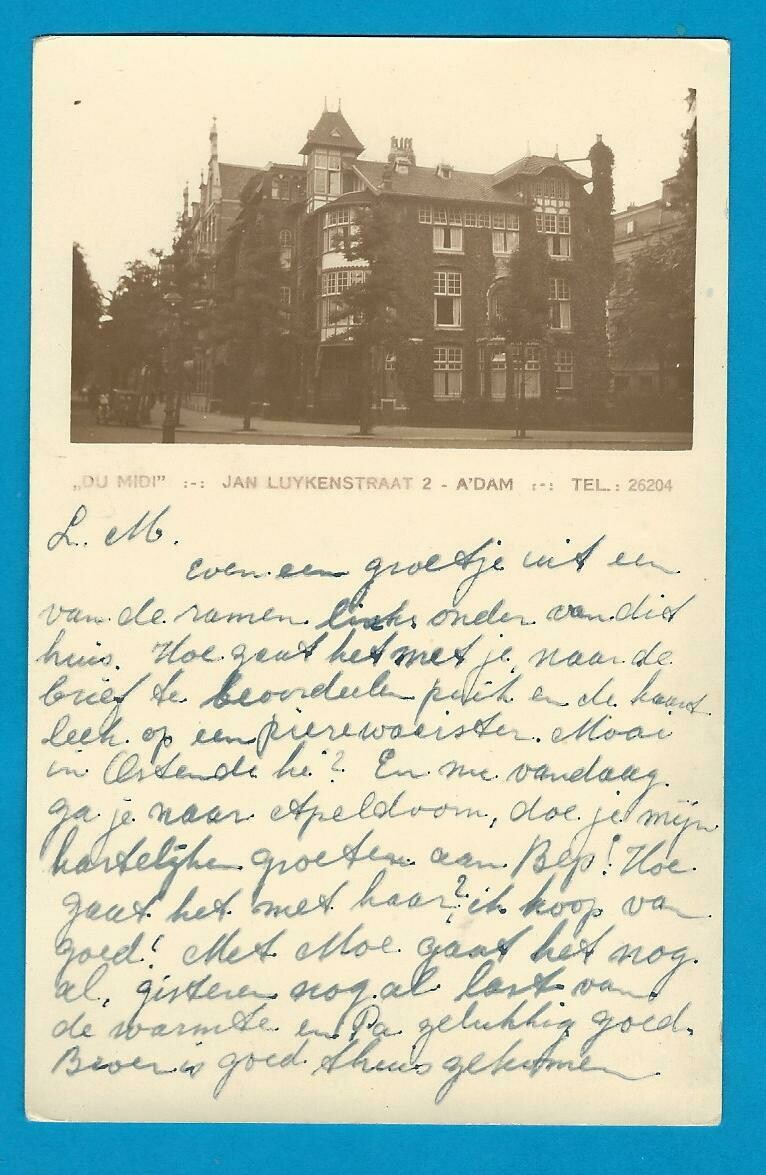 „DU MIDI" :-: JAN LUYKENSTRAAT 2 - A'DAM :-: TEL.: 26204
L. M.
even een groetje uit een
van de ramen links onder van dit
huis. Hoe gaat het met je, naar de
brief te beoordeelen puik en de kaart
leek op een pierewaaister. Mooi
in Ostende hè? En nu vandaag
ga je naar Apeldoorn, doe je mijn
hartelijken groeten aan Bep! Hoe
gaat het met haar? ik hoop van
goed! Met Moe gaat het nog
al, gisteren nog al last van
de warmte en Pa gelukkig goed.
is goed thuis gekomen